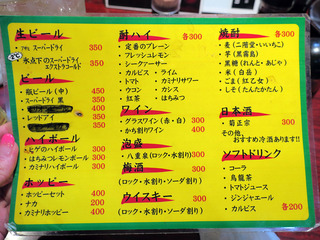 生ビール
・アサヒ スーパードライ 350
・氷点下のスーパードライ
エクストラコールド 350
ビール
・瓶ビール(中) 450
・スーパードライ 黒 350
400
・レッドアイ 350
350
ハイボール
ヒゲのハイボール 300
・はちみつレモンボール 300
・カミナリハイボール 300
ホッピー
・ホッピーセット 400
・ナカ 200
・カミナリホッピー 400
酎ハイ 各300
・定番のプレーン
・フレッシュレモン
・シークアーサー
・カルピス ・ライム
・トマト ・カミナリサワー
・ウコン ・カシス
・紅茶 ・はちみつ
ワイン
・グラスワイン(赤・白) 300
・かち割りワイン 400
泡盛
・八重泉(ロック・水割り) 300
梅酒 300
(ロック・水割り・ソーダ割り)
ウイスキー 300
(ロック・水割り・ソーダ割り)
焼酎 各300
・麦(二階堂・いいちこ)
・芋(黒霧島)
・黒糖(れんと・あじゃ)
・米(白岳)
・ごま(紅乙女)
・しそ(たんたかたん)
日本酒
・菊正宗 300
その他、
おすすめ冷酒あります!!
ソフトドリンク
・コーラ
・烏龍茶
・トマトジュース
・ジンジャエール
・カルピス 各200